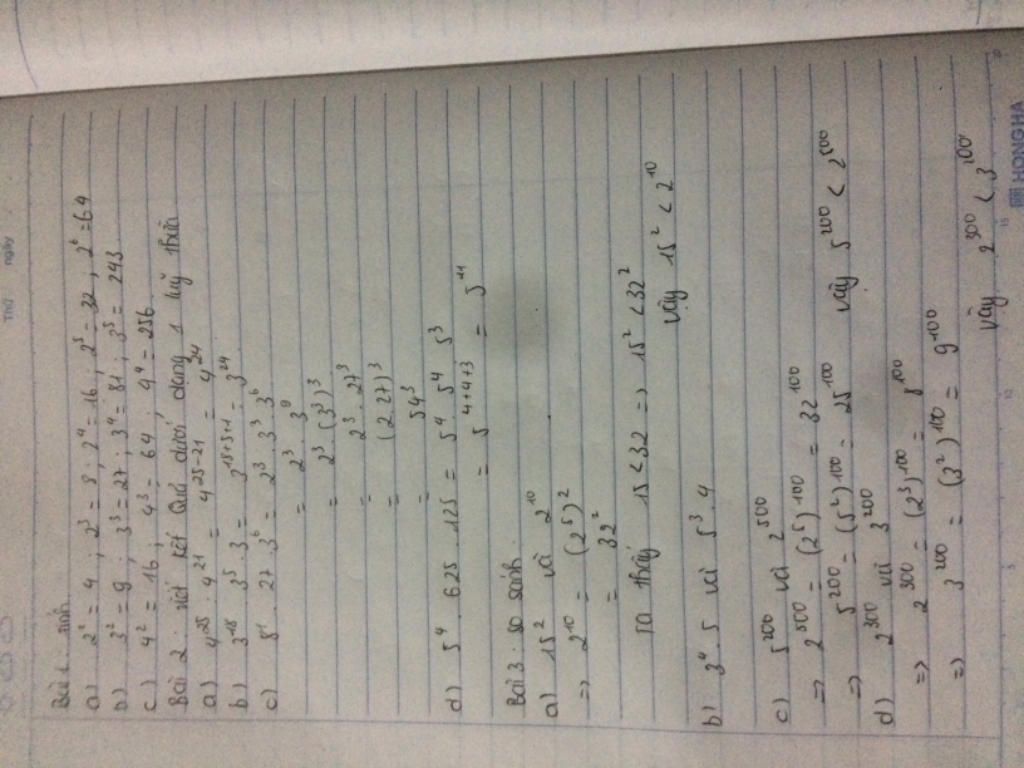 Thứ ngày
Bài 1. tính
a) 2² = 4 ; 2³ = 8 ; 2⁴ = 16 ; 2⁵ = 32 ; 2⁶ = 64
b) 3² = 9 ; 3³ = 27 ; 3⁴ = 81 ; 3⁵ = 243
c) 4² = 16 ; 4³ = 64 ; 4⁴ = 256
Bài 2. viết kết quả dưới dạng 1 luỹ thừa
a) 4²⁵ . 4²¹ = 4²⁵⁻²¹ = 4²⁴
b) 3¹⁵ . 3⁵ . 3 = 3¹⁵⁺⁵⁺¹ = 3²⁴
c) 8¹ . 27 . 3⁶ = 2³ . 3³ . 3⁶
= 2³ . 3⁹
= 2³ . (3³)³
= 2³ . 27³
= (2.27)³
= 54³
d) 5⁴ . 625 . 125 = 5⁴ . 5⁴ . 5³
= 5⁴⁺⁴⁺³ = 5¹¹
Bài 3. so sánh
a) 15² và 2¹⁰
=> 2¹⁰ = (2⁵)²
= 32²
Ta thấy 15 < 32 => 15² < 32²
vậy 15² < 2¹⁰
b) 3⁴ . 5 và 5³ . 4
c) 5²⁰⁰ và 2⁵⁰⁰
=> 2⁵⁰⁰ = (2⁵)¹⁰⁰ = 32¹⁰⁰
=> 5²⁰⁰ = (5²)¹⁰⁰ = 25¹⁰⁰ vậy 5²⁰⁰ < 2⁵⁰⁰
d) 2³⁰⁰ và 3²⁰⁰
=> 2³⁰⁰ = (2³)¹⁰⁰ = 8¹⁰⁰
=> 3²⁰⁰ = (3²)¹⁰⁰ = 9¹⁰⁰
vậy 2³⁰⁰ < 3²⁰⁰
5 10 15 20 HONG HA